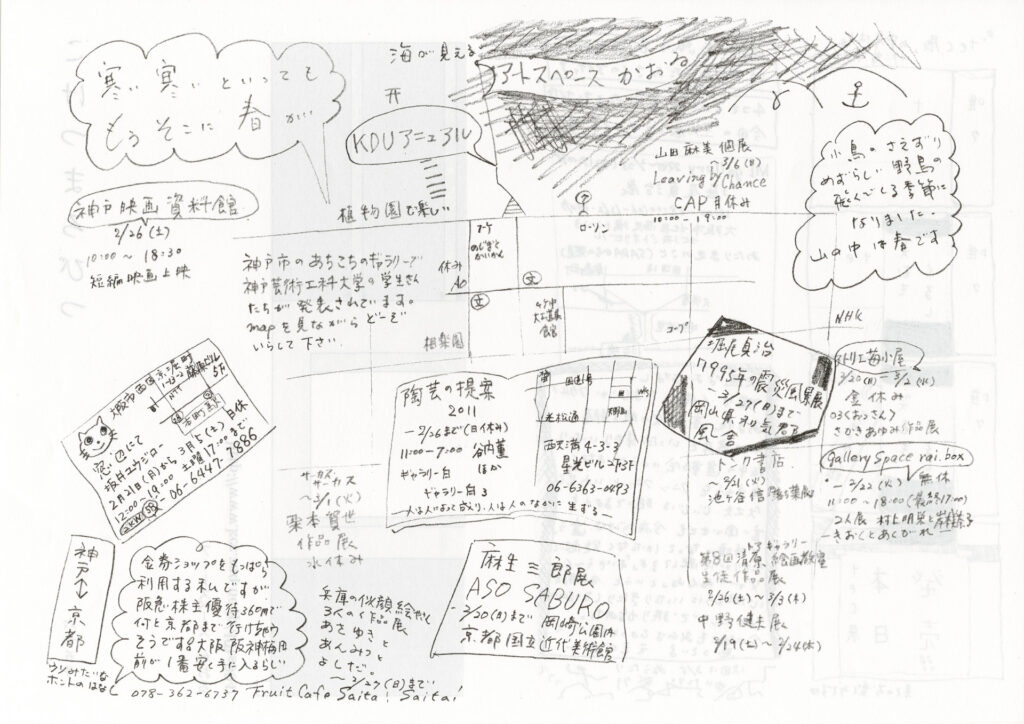 寒い寒いといっても
もうそこに春が…
海が見える
アートスペースかおる
KDUアニュアル
植物園で楽しい
神戸映画資料館
2/26(土)
10:00〜18:30
短編映画上映
神戸市のあちこちのギャラリーで
神戸芸術工科大学の学生さん
たちが発表されています。
mapを見ながらどーぞ
いらして下さい。
休み
相楽園
ローソン
コープ
NHK
山田麻美個展
〜3/6(日)
Leaving by Chance
CAP月休み
10:00-19:00
小鳥のさえずり
めずらしい野鳥の
飛んでいる季節に
なりました.
山の中は春です
大阪市西区京町堀
5F
月休
窓辺にて
坂月ユウジロー
2月21日(月)から3月5日(土)
12:00〜19:00 土曜17:00まで
06-6447-7886
陶芸の提案
2011
-2/26まで(日休み)
11:00-7:00
ほか
ギャラリー白
ギャラリー白3
老松通
西天満4-3-3
星光ビル2F3F
06-6363-0493
人は人によって成り、人は人のなかに生ずる〜
堀尾貞治
1995年の震災風景展
〜3/27(日)まで
岡山県和気郡
3/20(日)
金休み
さかきあゆみ作品展
gallery space rai.box
-2/22(火) 無休
11:00〜18:00(最終17:00)
2人展
-きおくとあくがれ-
サーカスサーカス
〜3/1(火)
栗本賀世
作品展
水休み
トンカ書店
池谷信
ギャラリー
生徒作品展
2/26(土)〜3/3(木)
中野健夫展
3/19(土)〜3/24(木)
麻生三郎展
ASO SABURO
-3/20(日)まで 岡崎公園内
京都国立近代美術館
神戸↔京都
金券ショップをもっぱら
利用する私ですが
阪急株主優待360円で
何と京都まで行けちゃう
そうです大阪阪神梅田
前が1番安く手に入るらしい
ウソみたいな
ホントのはなし
兵庫の似顔絵やさん
3人の作品展
あさゆきと
あんみつと
よしだ。
〜2/27(日)まで
078-362-6737 Fruit Cafe Saita! Saita!